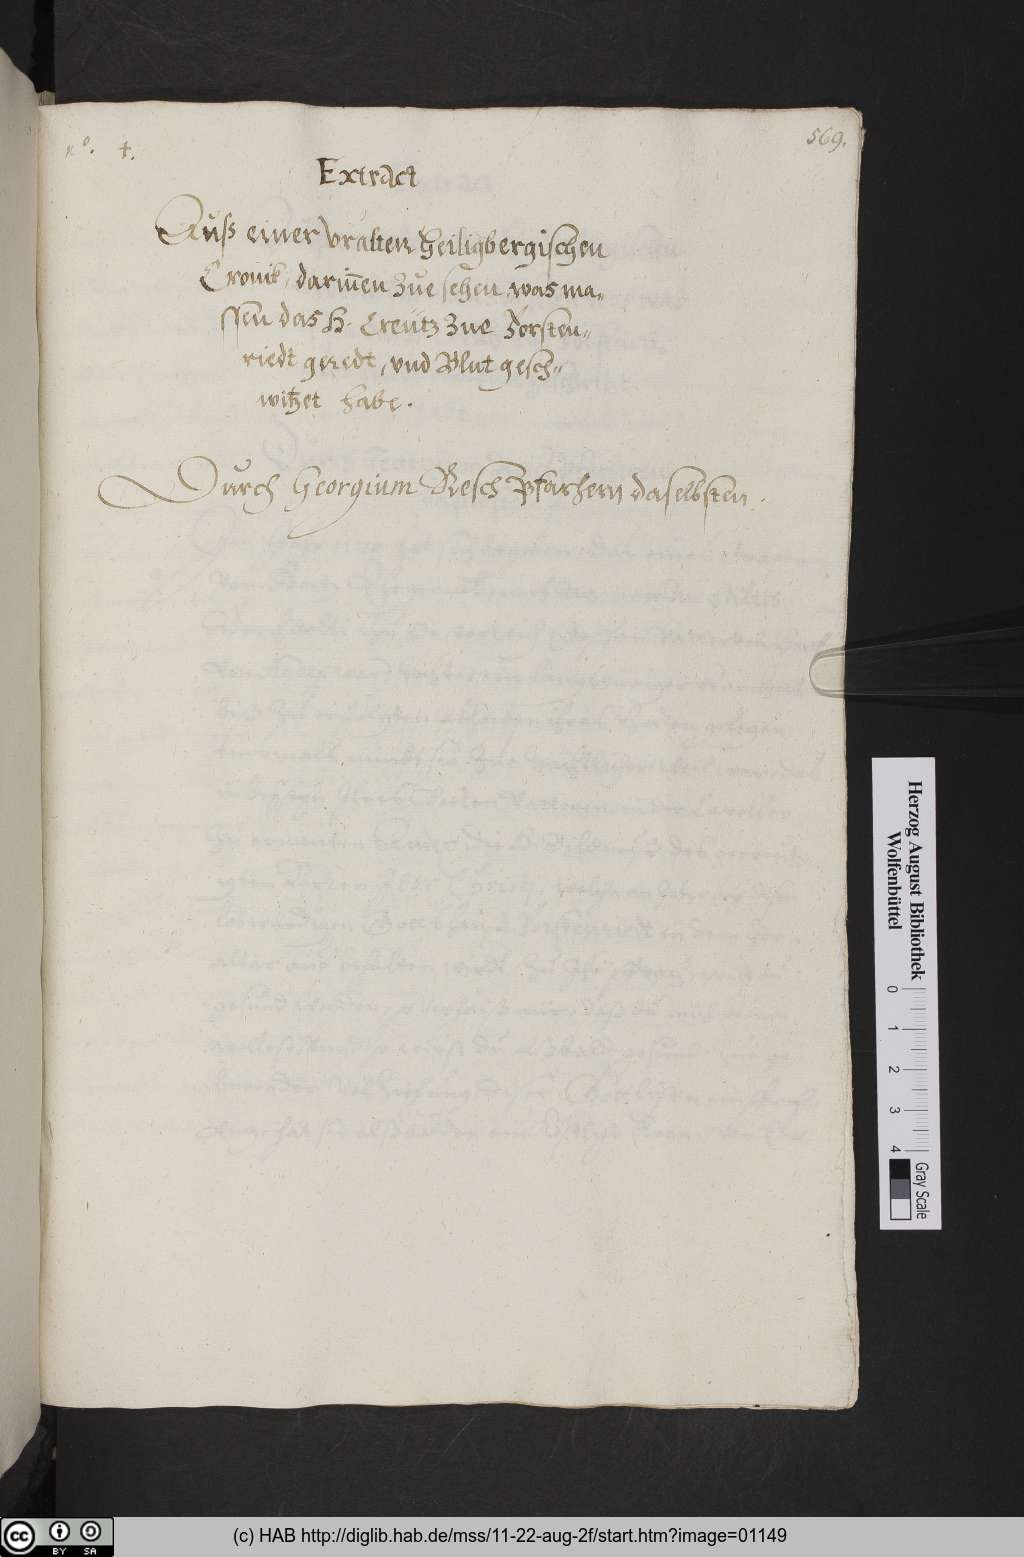 nº. 4.
569.
Extract
Auß einer vralten Heiligbergischen
Cronik, dariñen zue sehen, was ma-
ssen das H. Creütz zue Forsten-
riedt geredt, vnd Blut gesch-
witzet habe.
Durch Georgium Resch Pfarhern daselbsten.
Herzog August Bibliothek
Wolfenbüttel
0 1 2 3 4
Gray Scale
cc BY SA
(c) HAB http://diglib.hab.de/mss/11-22-aug-2f/start.htm?image=01149